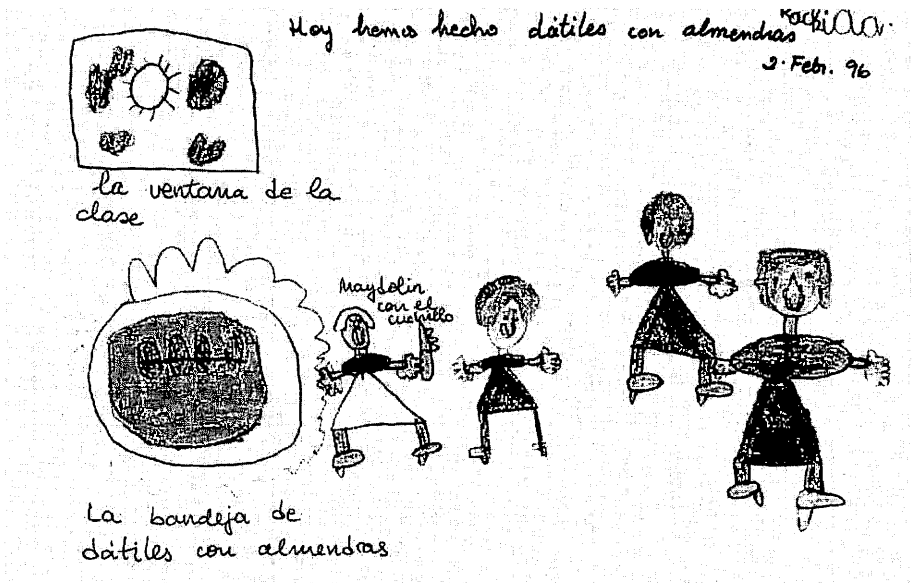 Hoy hemos hecho dátiles con almendras
2. Febr. 96
la ventana de la
clase
Maydolin
con el
cuchillo
La bandeja de
dátiles con almendras